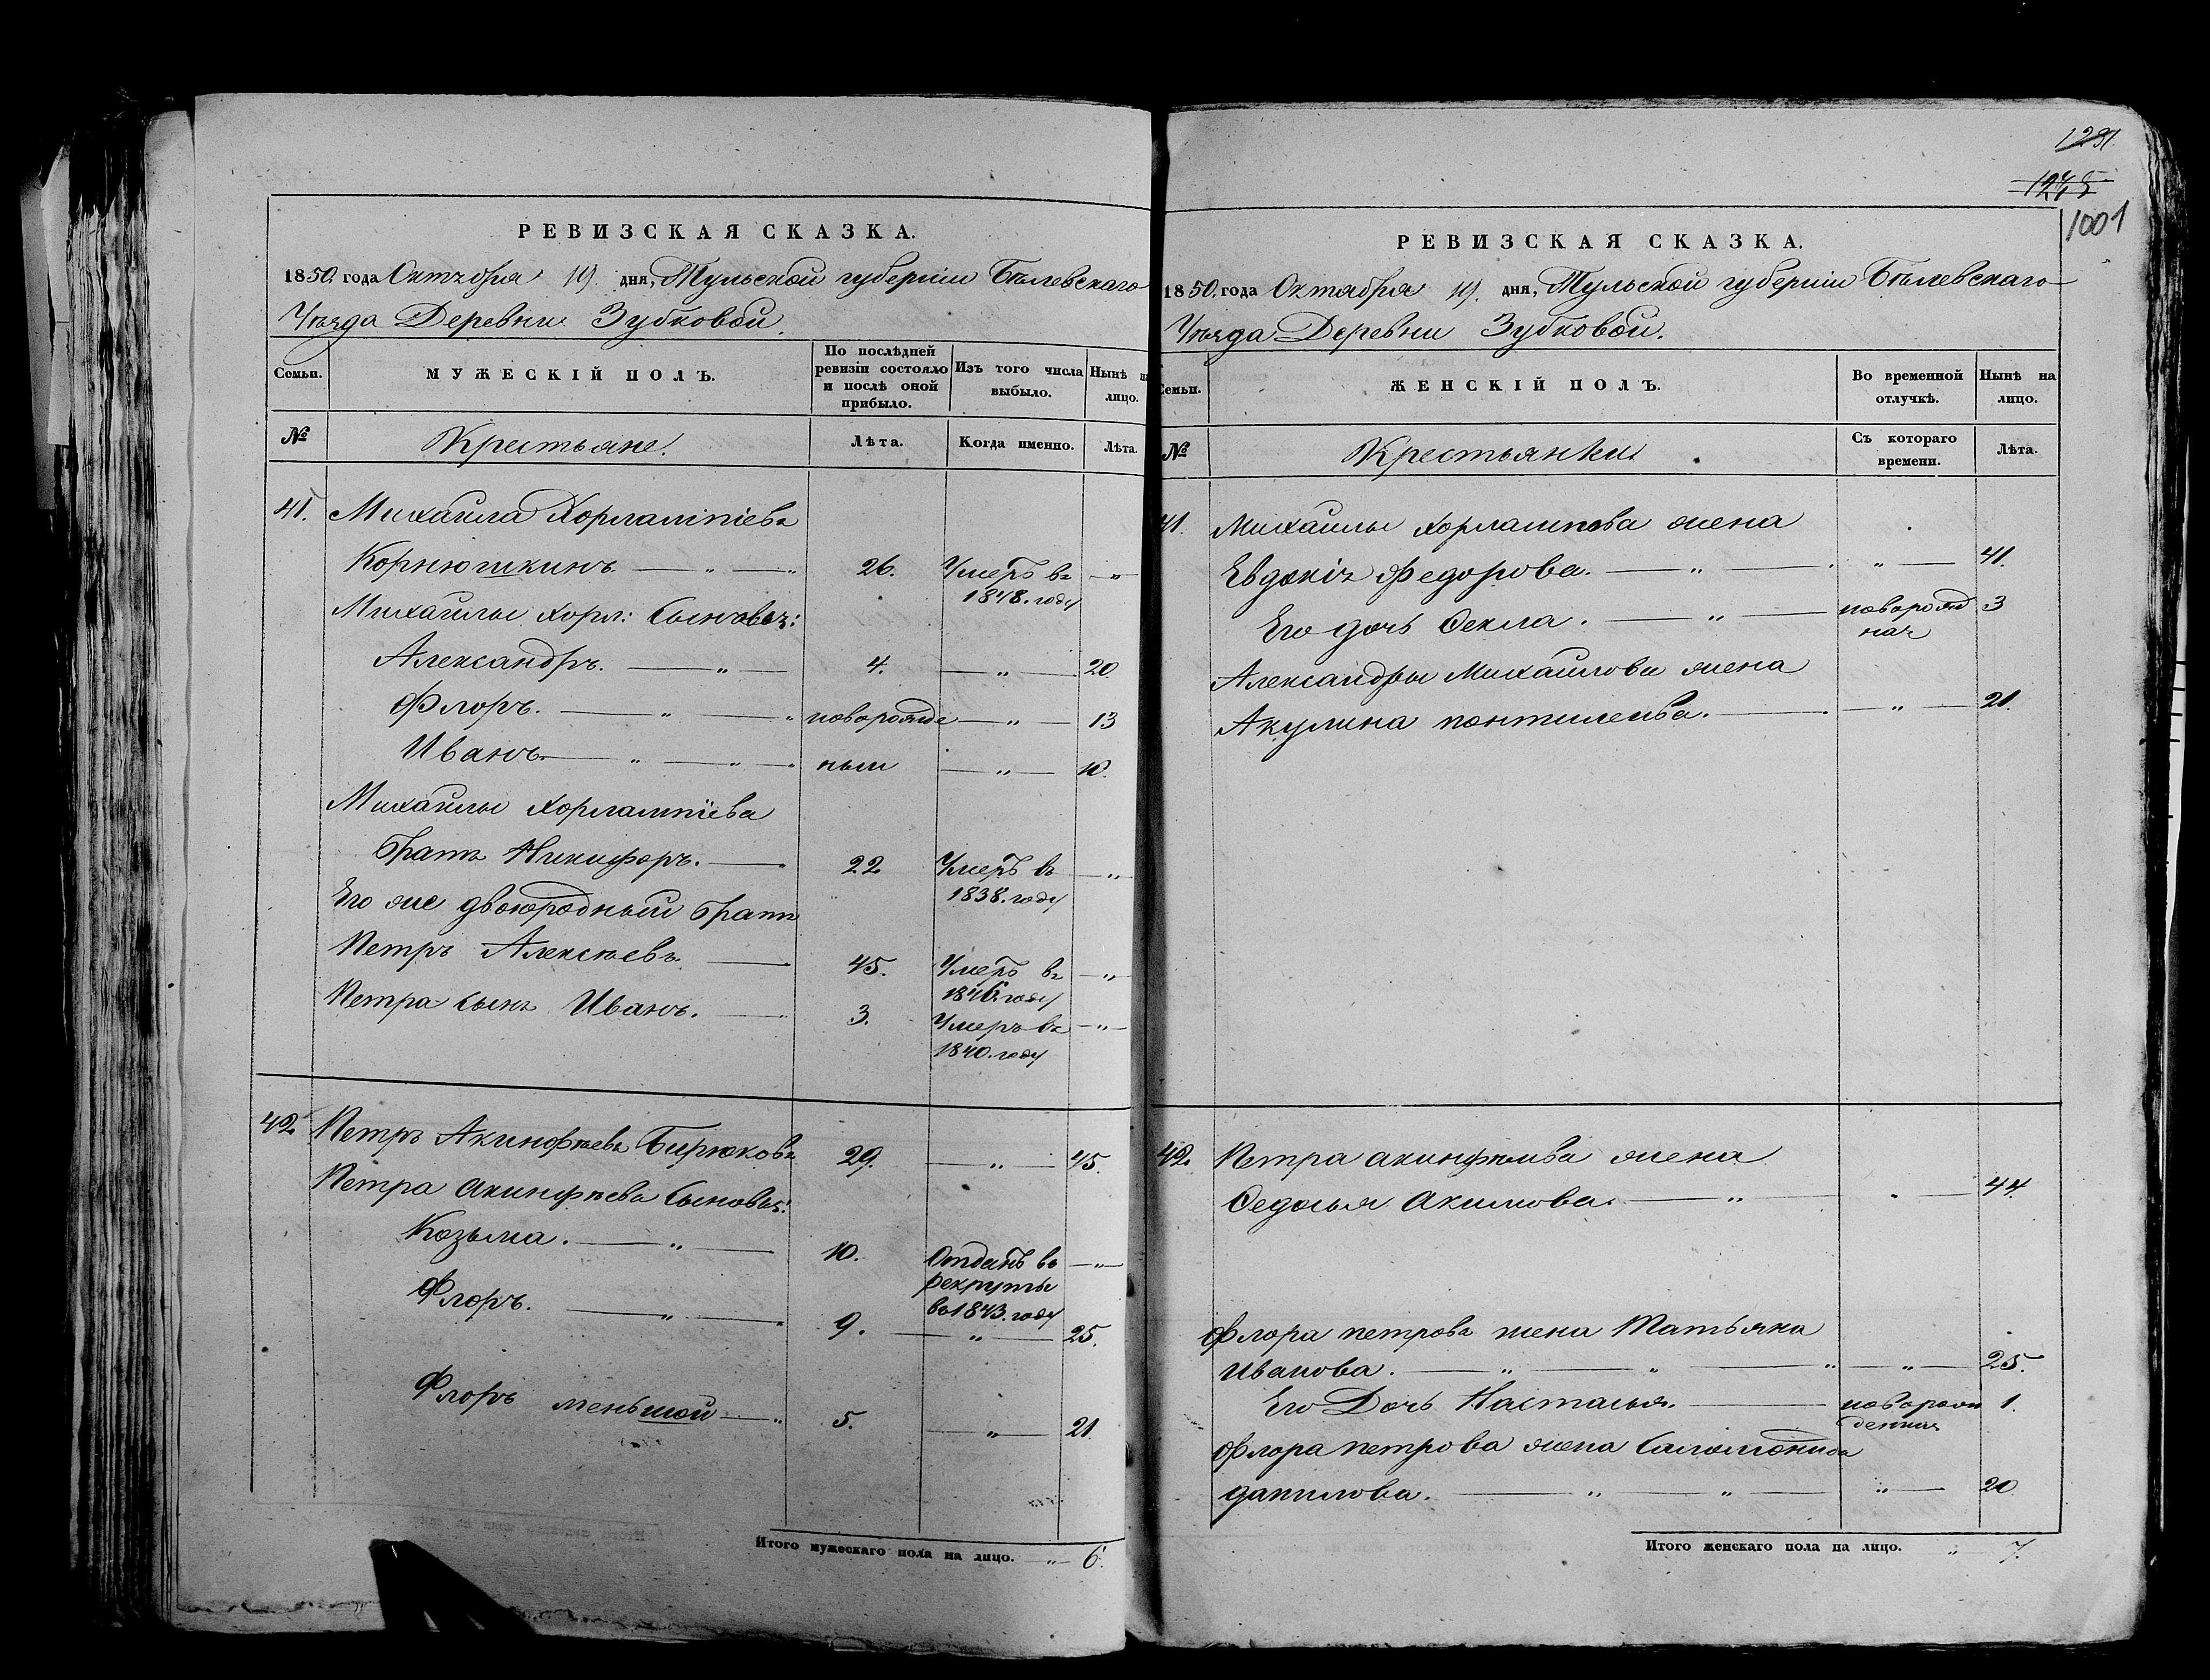 РЕВИЗСКАЯ СКАЗКА.
1850. года Октября 19. дня, Тульской губерніи Бѣлевскаго
Уѣзда Деревни Зубковой.
Семьи. МУЖЕСКІЙ ПОЛЪ. По послѣдней ревизіи состояло и послѣ оной прибыло. Изъ того числа выбыло. Нынѣ на лицо.
№ Крестьяне. Лѣта. Когда именно. Лѣта.
41. Михайла Хорлампіевъ
Корнюшкинъ. — „ — „ 26. Умеръ въ — „
1848. году
Михайлы Хорл: Сыновья:
Александръ. — „ — 4. — „ — 20.
Флоръ. — „ — „ новорожде — „ — 13
Иванъ — „ — „ — ныи — „ — 10.
Михайлы Хорлампіева
Братъ Никифоръ. — 22 Умеръ въ — „
1838. году
Его же двоюродный братъ
Петръ Алексѣевъ. — 45. Умеръ въ — „
1846. году
Петра сынъ Иванъ. — 3. Умеръ въ — „ —
1840. году
42. Петръ Акинфѣевъ Бирюковъ 29. — „ — 45.
Петра Акинфѣева Сыновья:
Козьма. — „ — 10. Отданъ въ — „ —
рекруты
въ 1843. году
Флоръ. — „ — 9. — „ — 25.
Флоръ меньшой — „ 5. — „ — 21
Итого мужескаго пола на лицо. „ — 6.
1231
1245
1001
РЕВИЗСКАЯ СКАЗКА.
1850. года Октября 19. дня, Тульской губерніи Бѣлевскаго
Уѣзда Деревни Зубковой.
Семьи. ЖЕНСКІЙ ПОЛЪ. Во временной отлучкѣ. Нынѣ на лицо.
№ Крестьянки. Съ котораго времени. Лѣта.
41. Михайлы Хорлампова жена
Евдокія Федорова. — „ — „ — 41.
Его дочь Фекла. — „ — новорожд 3
ная
Александры Михайлова жена
Акулина понтилеива. — — „ — 21.
42. Петра акинфѣива жена
Федосья Акимова. — „ — 44.
Флора петрова жена Татьяна
Иванова. — „ — „ — „ — „ — 25.
Его Дочь Настасья. — новорож 1.
денная
Флора петрова жена Саломонида
данилова. — „ — „ — „ — 20
Итого женскаго пола на лицо. „ — 7.